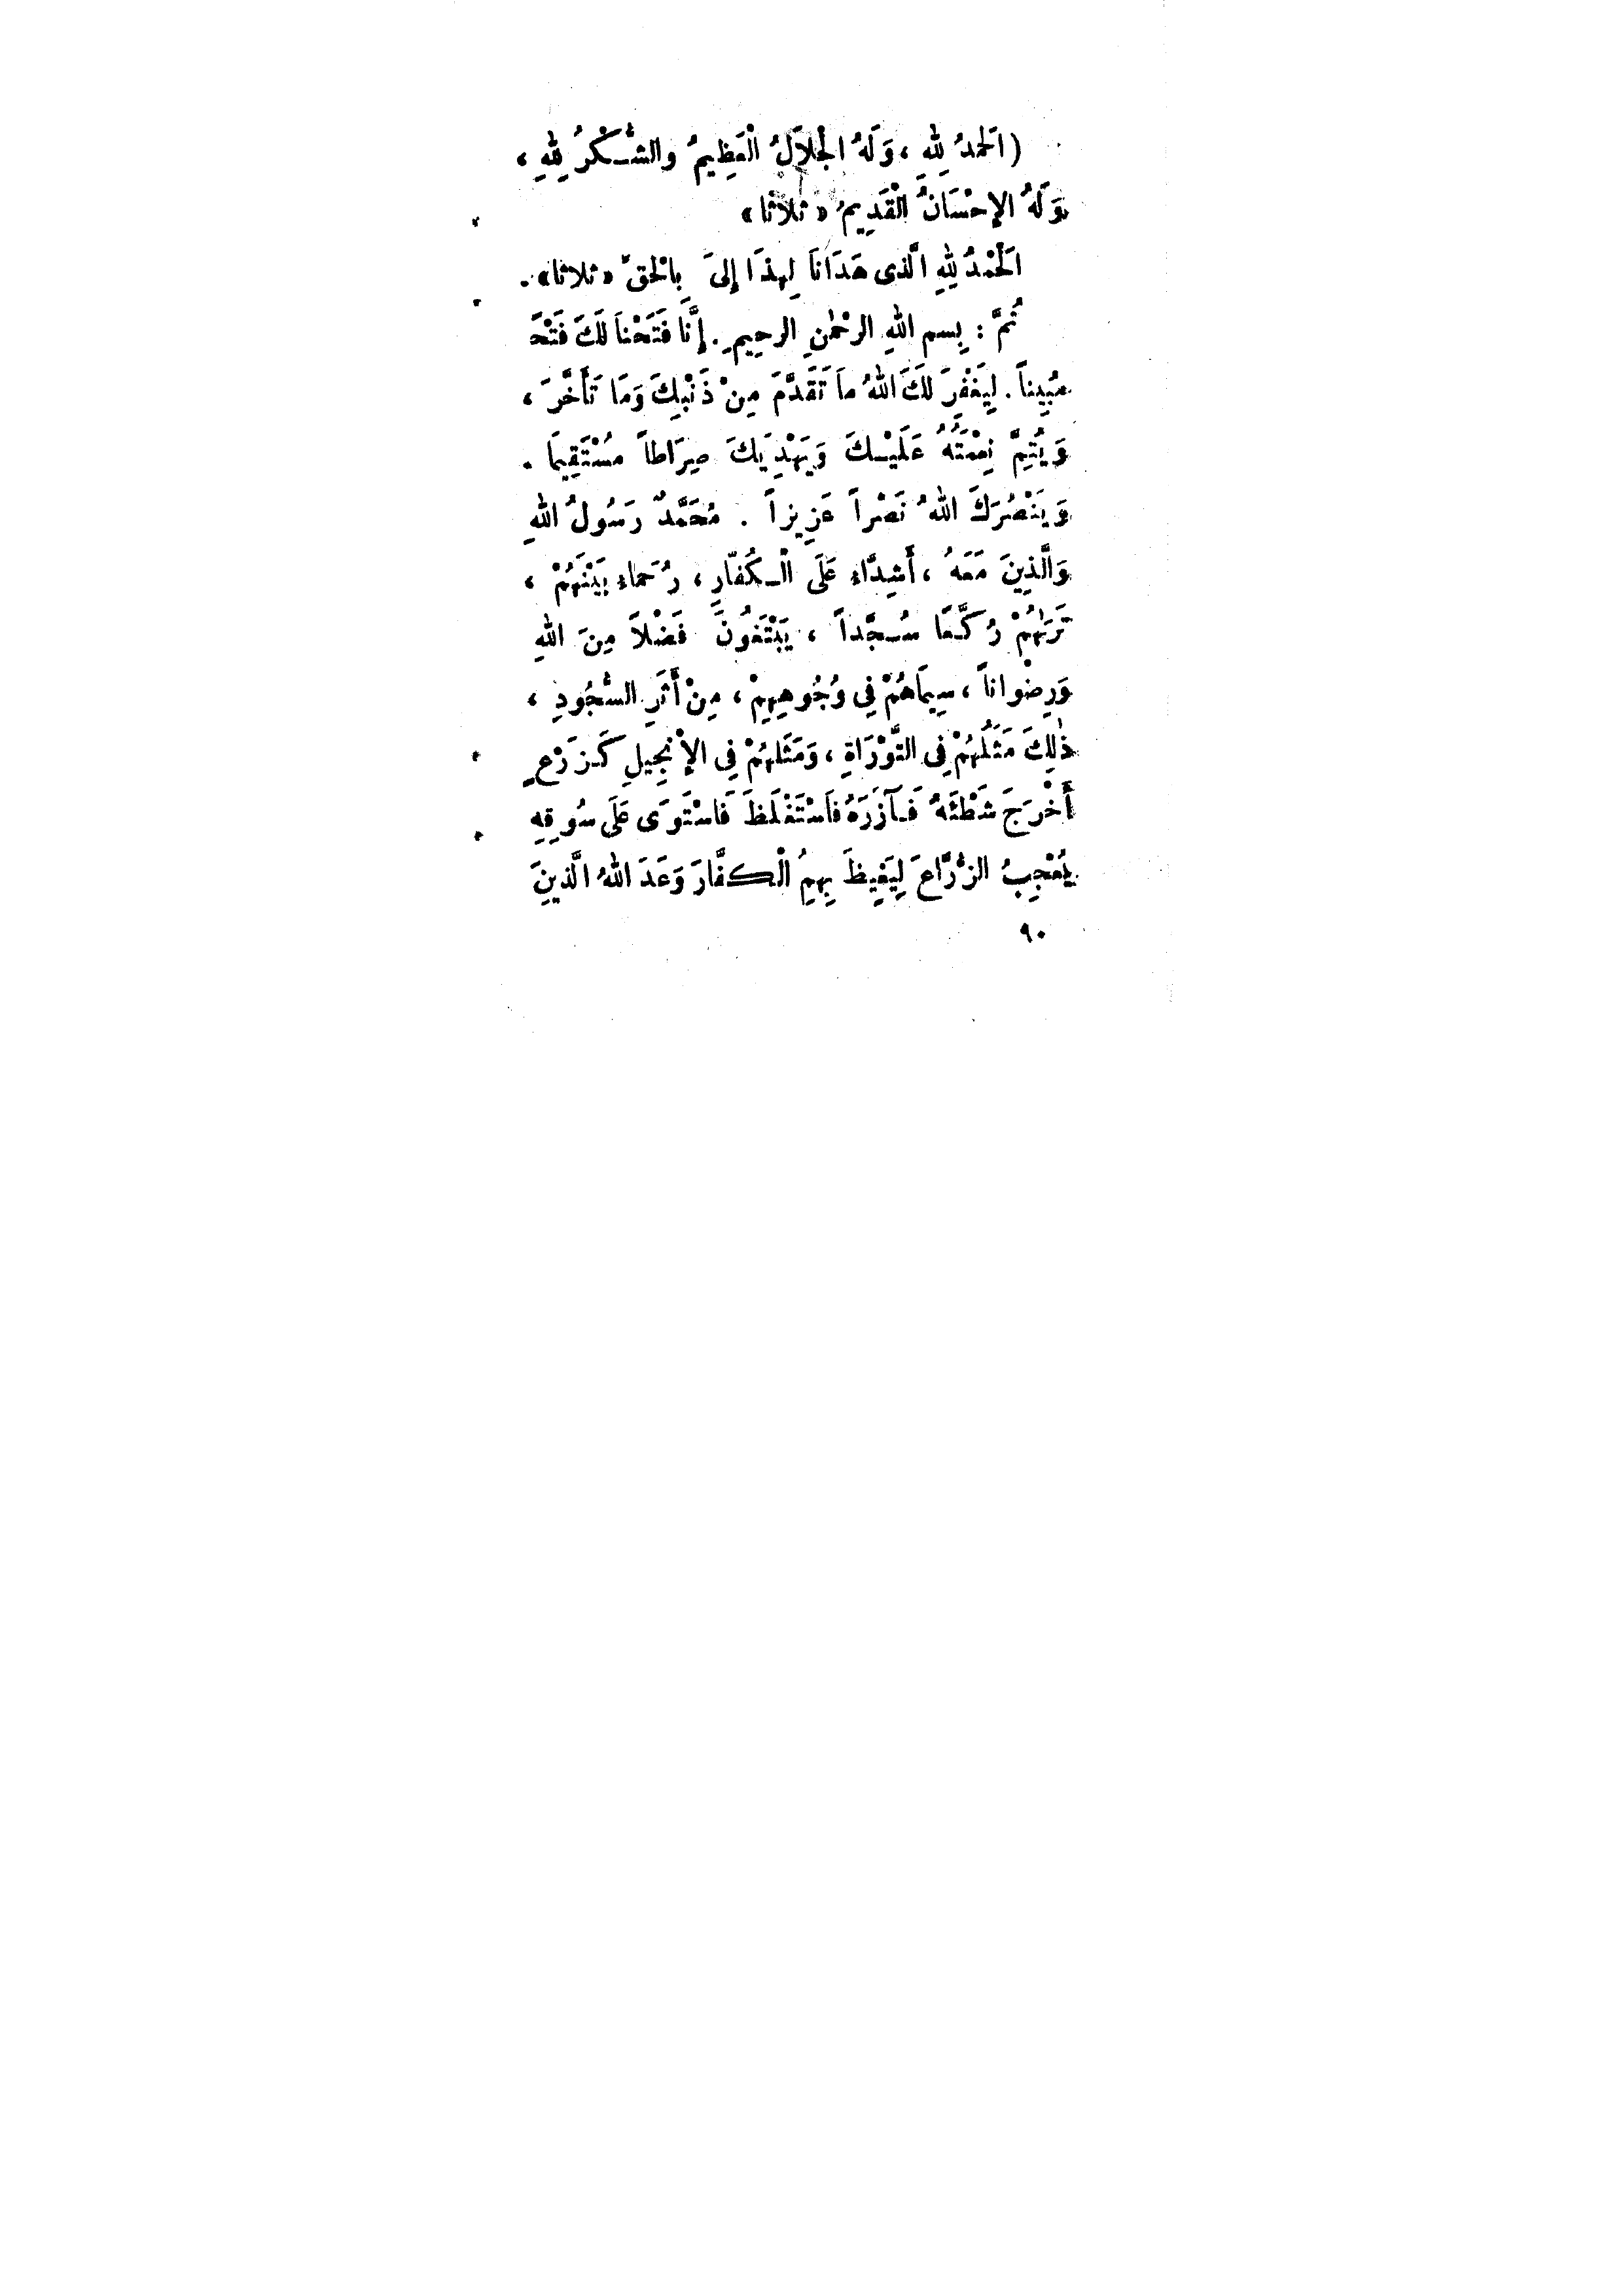 (اَلحمدُ لِلّٰهِ ، وَلَهُ الْجلاَلُ الْعَظِيمُ والشُّكْرُ لِلّٰهِ ،
وَلَهُ الإِحْسَانُ الْقَدِيمُ « ثلاثا »
اَلْحَمْدُ لِلّٰهِ الَّذى هَدَاناَ لِهذَا إِلىَ بِالْحقّ « ثلاثا » .
ثُمَّ : بِسم اللهِ الرحْمٰنِ الرحِيمِ . إِنَّا فَتَحْناَ لَكَ فَتْحَ
مُبِيناً . لِيَغْفِرَ لَكَ اللهُ ماَ تَقَدَّمَ مِنْ ذَنْبِكَ وَمَا تَأَخَّرَ ،
وَيُتِمَّ نِعْمَتَهُ عَلَيْكَ وَيَهْدِيَكَ صِرَاطاً مُسْتَقِيمَا .
وَيَنْصُرَكَ اللهُ نَصْراً عَزِيزاً . مُحَمَّدٌ رَسُولُ اللهِ
وَالَّذِينَ مَعَهُ ، أَشِدَّاءِ عَلَى الْكُفّارِ ، رُحَماء بَيْنَهُمْ ،
تَرَاهُمْ رُكَّعًا سُجَّداً ، يَبْتَغُونَ فَضْلاً مِنَ اللهِ
وَرِضْواناً ، سِيمَاهُمْ فِي وُجُوهِهِمْ ، مِنْ أَثَرِ السُّجُودِ ،
ذٰلِكَ مَثَلُهُمْ فِى التَّوْرَاةِ ، وَمَثَلهُمْ فِى الإْنْجِيلِ كَزَرْعٍ
أَخْرَجَ شَطْئَهُ فَآزَرَهُ فاَسْتَغْلَظَ فَاسْتَوَى عَلَى سُوقِهِ
يُعْجِبُ الزُّرَّاعَ لِيَغِيظَ بِهِمُ الْكفَّارَ وَعَدَ اللهُ الَّذِينَ
٩٠